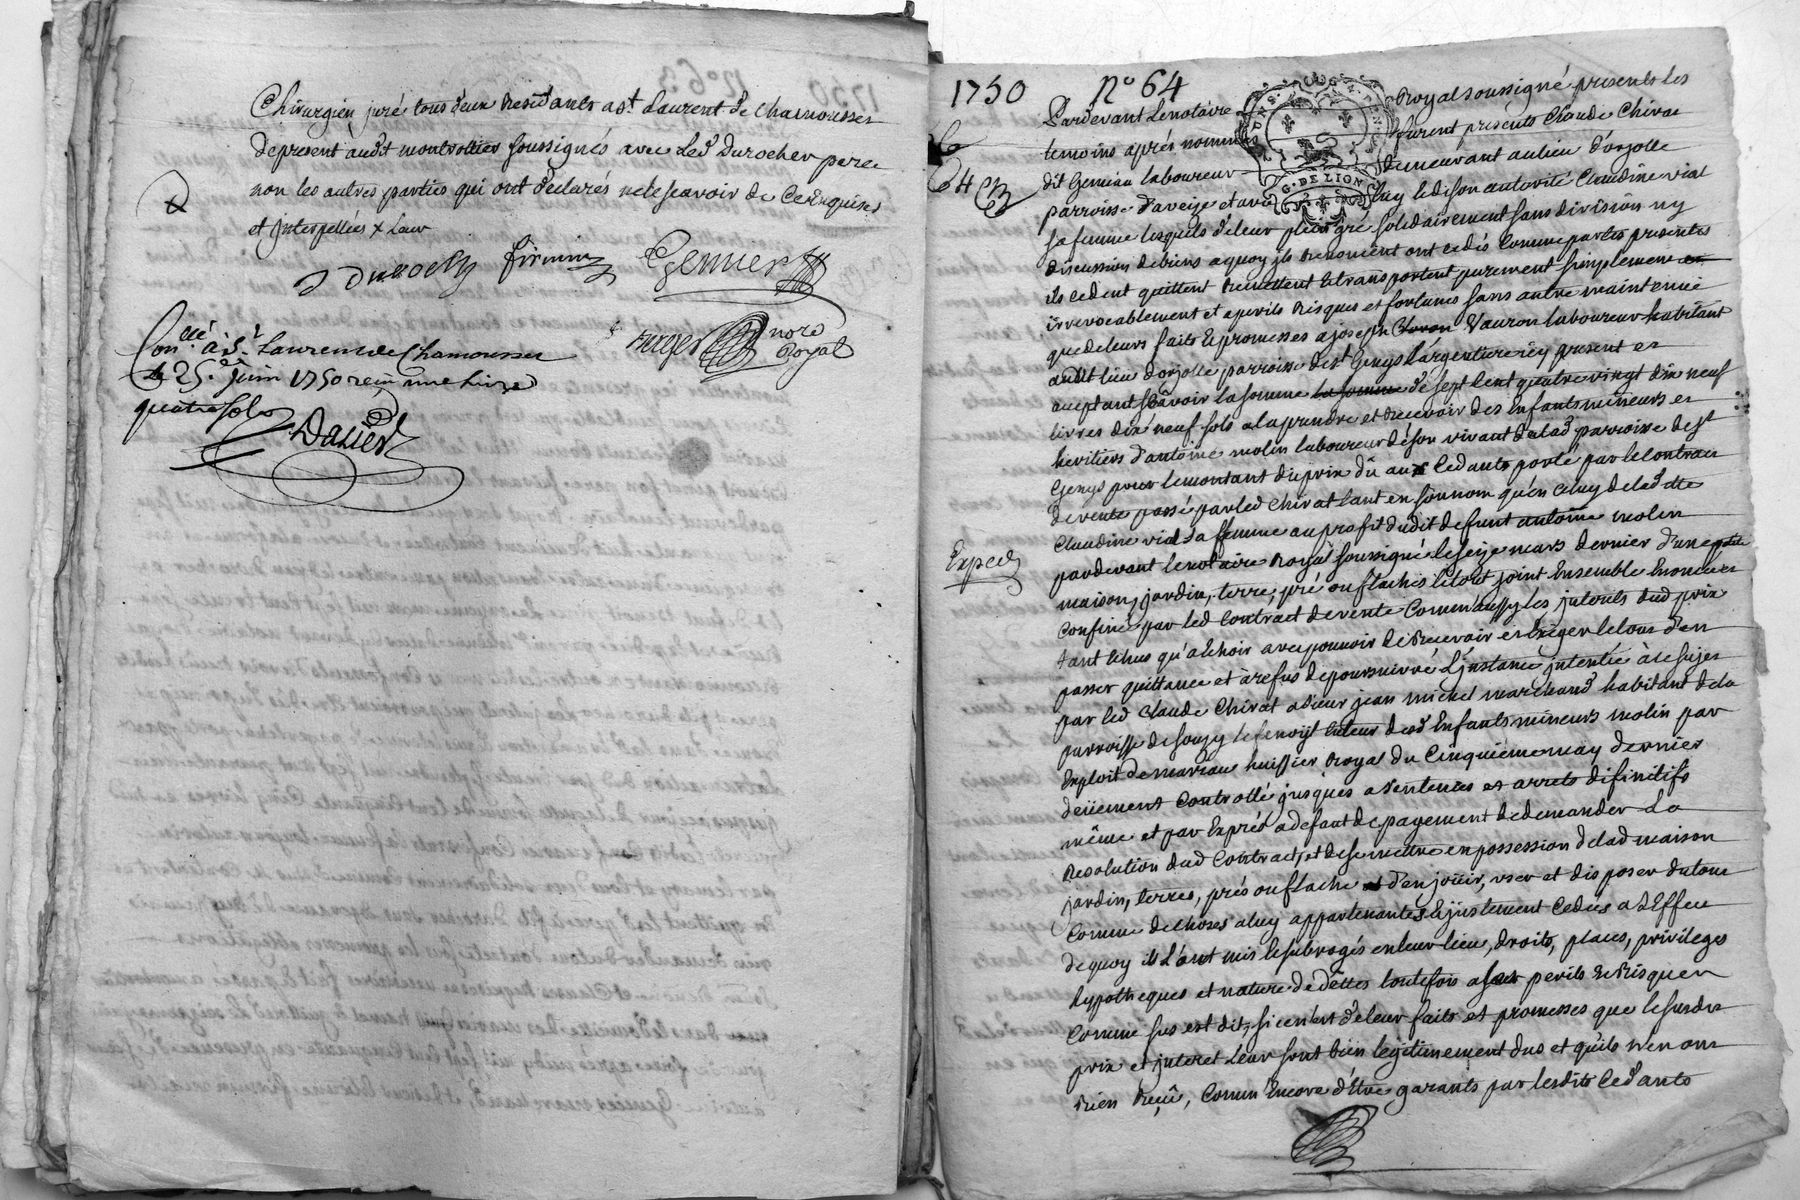 Chirurgien juré tous deux Residants a St Laurent de Chamousset
de present audit montrottier soussignés avec led Durocher pere
non les autres parties qui ont declarés ne le scavoir de ce requises
et Interpellées x
Durocher firmin Grenier
not
Royal
Con.llé à St Laurent de Chamousset
le 25e juin 1750 reçu une livre
quatre sols
1750 No 64
Pardevant Le notaire Royal soussigné presents les
temoins aprés nommés furent présents Claude Chirat
dit Geniau laboureur Demeurant au lieu d'orjolle
parroisse d'aveize et avec luy led. son autorité Claudine vial
sa femme lesquels de leur plein gré solidairement sans division ny
discussion de biens a quoy ils Renoncent ont cedés Comme par les presentes
ils cedent quittent Remettent et transportent purement simplement et
irrevocablement et a perils Risques et fortunes sans autre maintenüe
que de leurs faits et promesses a joseph Vauron laboureur habitant
audit lieu d'orjolle parroisse de st Genys l'argentiere icy present et
acceptant sçavoir la somme de sept Cent quatre vingt dix neuf
livres dix neuf sols a la prendre et recevoir des Enfants mineurs et
heritiers d'antoine molin laboureur de son vivant de lad parroisse de st
Genys pour le montant du prix dû aux Cedants porté par le Contract
de vente passé par led Chirat tant en son nom qu'en celuy de lad
Claudine vial sa femme au profit dudit defunt antoine molin
Exped
pardevant le notaire Royal soussigné le seize mars dernier d'une petite
maison, jardin, terre, pré ou flaches le tout joint Ensemble Enoncé et
Confiné par led Contract de vente Comm'aussy les interets dud prix
tant Echus qu'a Echoir avec pouvoir de Recevoir et Exiger le tout d'en
passer quittance et à refus de poursuivre L'instance intentée à ce sujet
par led Claude Chirat a sieur jean michel marchand habitant de la
parroisse de souzy tuteur desd Enfants mineurs molin par
Exploit de huissier Royal du Cinquieme may dernier
deüement Controllé jusques a sentences et arrets difinitifs
même et par Exprés a defaut de payement de demander La
Resolution dud Contract, et de se mettre en possession de lad maison
jardin, terres, prés ou flache d'en joüir, user et disposer du tout
Comme de choses a luy appartenantes et justement Cedées a L'Effet
de quoy ils L'ont mis et subrogés en leur lieu, droits, places, privileges
hypotheques et nature de dettes toutefois a ses perils et Risques
Comme sus est dit, si ce n'est de leur faits et promesses que le susdit
prix et interet Leur sont bien legitimement dus et qu'ils n'en ont
Rien Reçû, Comm'Encore d'être garants par lesdits Cedants
G. DE LION